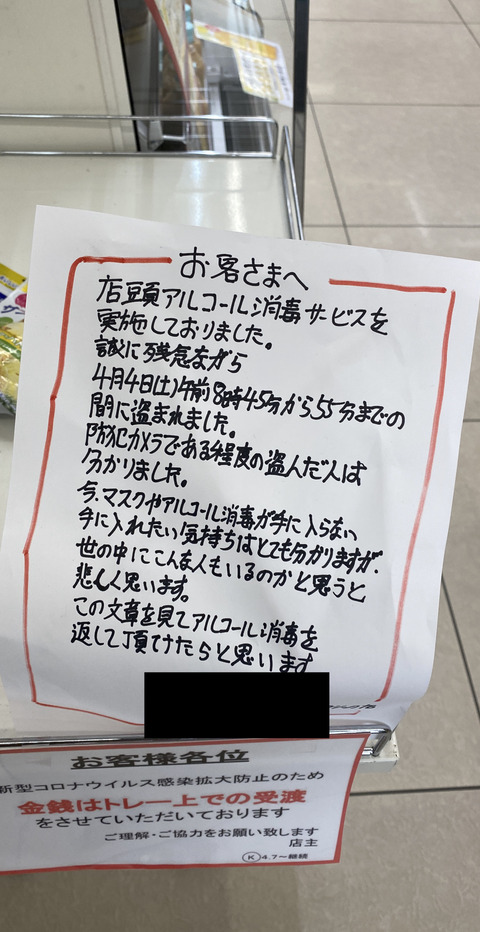 お客さまへ
店頭アルコール消毒サービスを
実施しておりました。
誠に残念ながら
4月4日(土)午前8時45分から55分までの
間に盗まれました。
防犯カメラである程度の盗んだ人は
分かりました。
今、マスクやアルコール消毒が手に入らない
手に入れたい気持ちはとても分かりますが、
世の中にこんな人もいるのかと思うと
悲しく思います。
この文章を見てアルコール消毒を
返して頂けたらと思います
お客様各位
新型コロナウイルス感染拡大防止のため
金銭はトレー上での受渡
をさせていただいております
ご理解・ご協力をお願い致します
店主
Ⓚ4.7〜継続